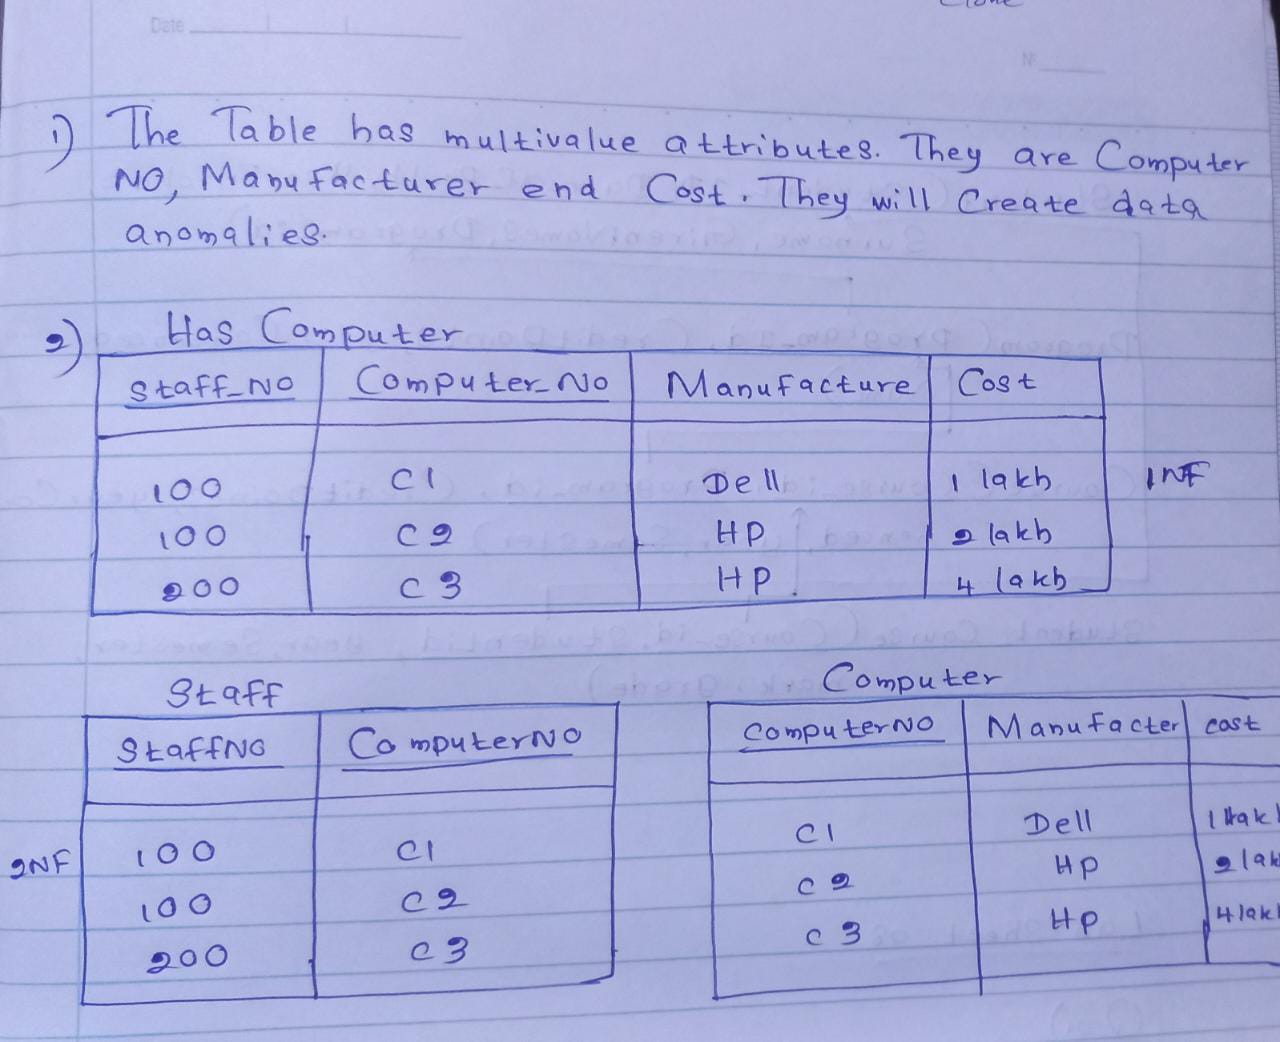 Date
Nº
1) The Table has multivalue attributes. They are Computer
NO, Manufacturer end Cost. They will Create data
anomalies.
2) Has Computer
Staff_NO Computer_No Manufacture Cost
100 C1 Dell 1 lakh 1NF
100 C2 HP 2 lakh
200 C3 HP 4 lakh
Staff
StaffNO ComputerNO
2NF 100 C1
100 C2
200 C3
Computer
computerNO Manufacter cost
C1 Dell
C2 HP 2 lak
C3 HP 4 lak